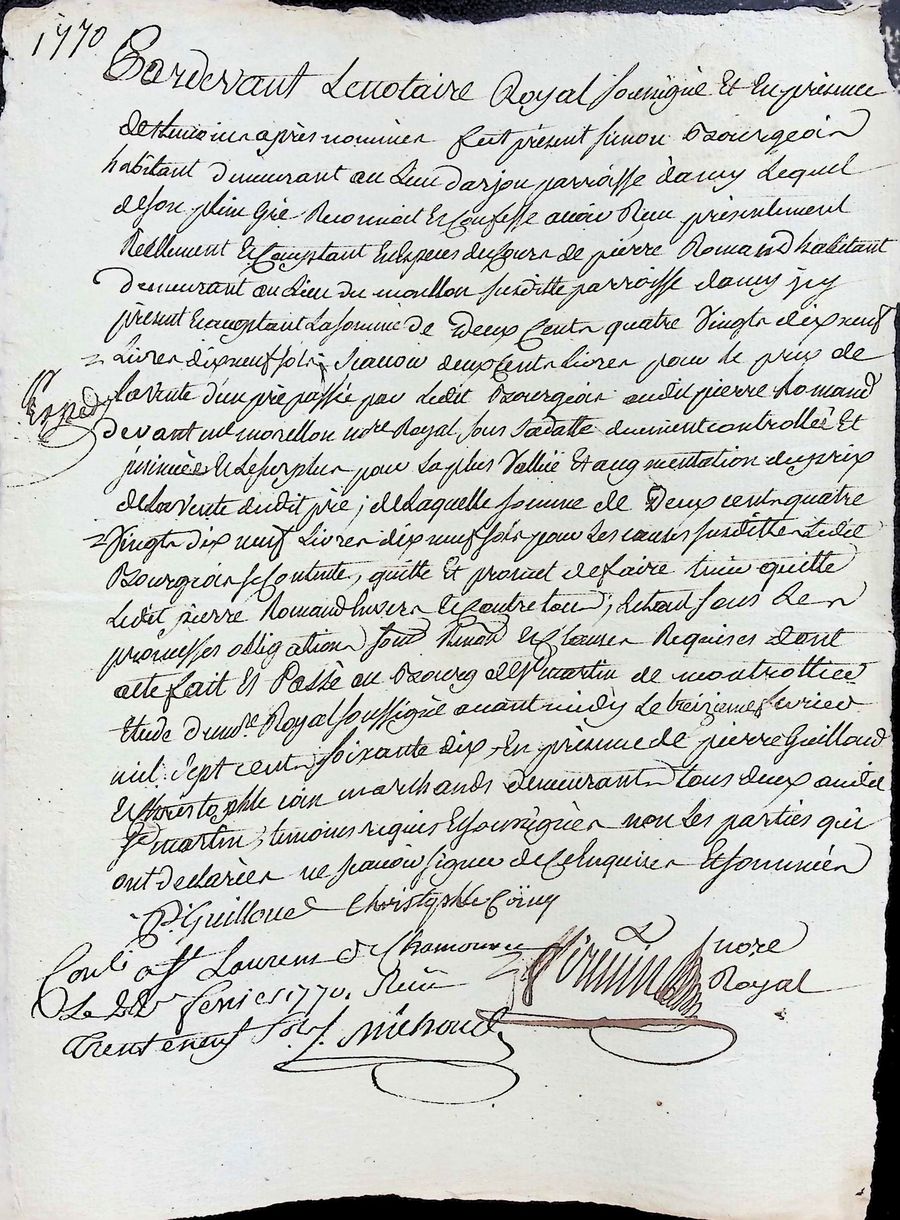 1770
Pardevant Le notaire Royal soussigné Et En présence
des temoins après nommés fut présent Simon Bourgeois
habitant demeurant au Lieu d'arjou parroisse dancy Lequel
de son plein gré Reconnoit Et Confesse avoir Reçu présentement
Réellement Et Comptant En Espèces du Cours de pierre Romand habitant
Demeurant au Lieu du moullon susditte parroisse dancy icy
présent Et acceptant La somme de Deux Cents quatre Vingts dix neuf
Livres dix neuf sols; scavoir deux Cents Livres pour le prix de
Expédié
La vente d'un pré passée par Ledit Bourgeois audit pierre Romand
devant me morellon nore Royal sous sa datte duement controllée Et
insinuée Et Le surplus pour La plus Vallüe Et augmentation du prix
de La Vente dudit pré; de Laquelle somme de Deux cents quatre
Vingts dix neuf Livres dix neuf sols pour Les causes susdittes Ledit
Bourgeois se Contente, quitte Et promet de faire tenir quitte
Ledit pierre Romand Envers Et Contre tous; Le tout sous Les
promesses obligations Et Clauses Requises dont
acte fait Et Passé au Bourg de St martin de montrottier
Etude du nore Royal soussigné avant midy Le treizieme fevrier
mil sept cents soixante dix En présence de pierre Guilloud
Et Christophle coin marchands demeurants tous deux audit
St martin, temoins requis Et soussignés non Les parties qui
ont declarées ne scavoir signer de Ce Enquises Et sommées
P. Guilloud Christophle Coin
nore
Royal
Conlé à St Laurent de Chamousset
Le fevrier 1770. Reçu
Trente neuf sols Michoud